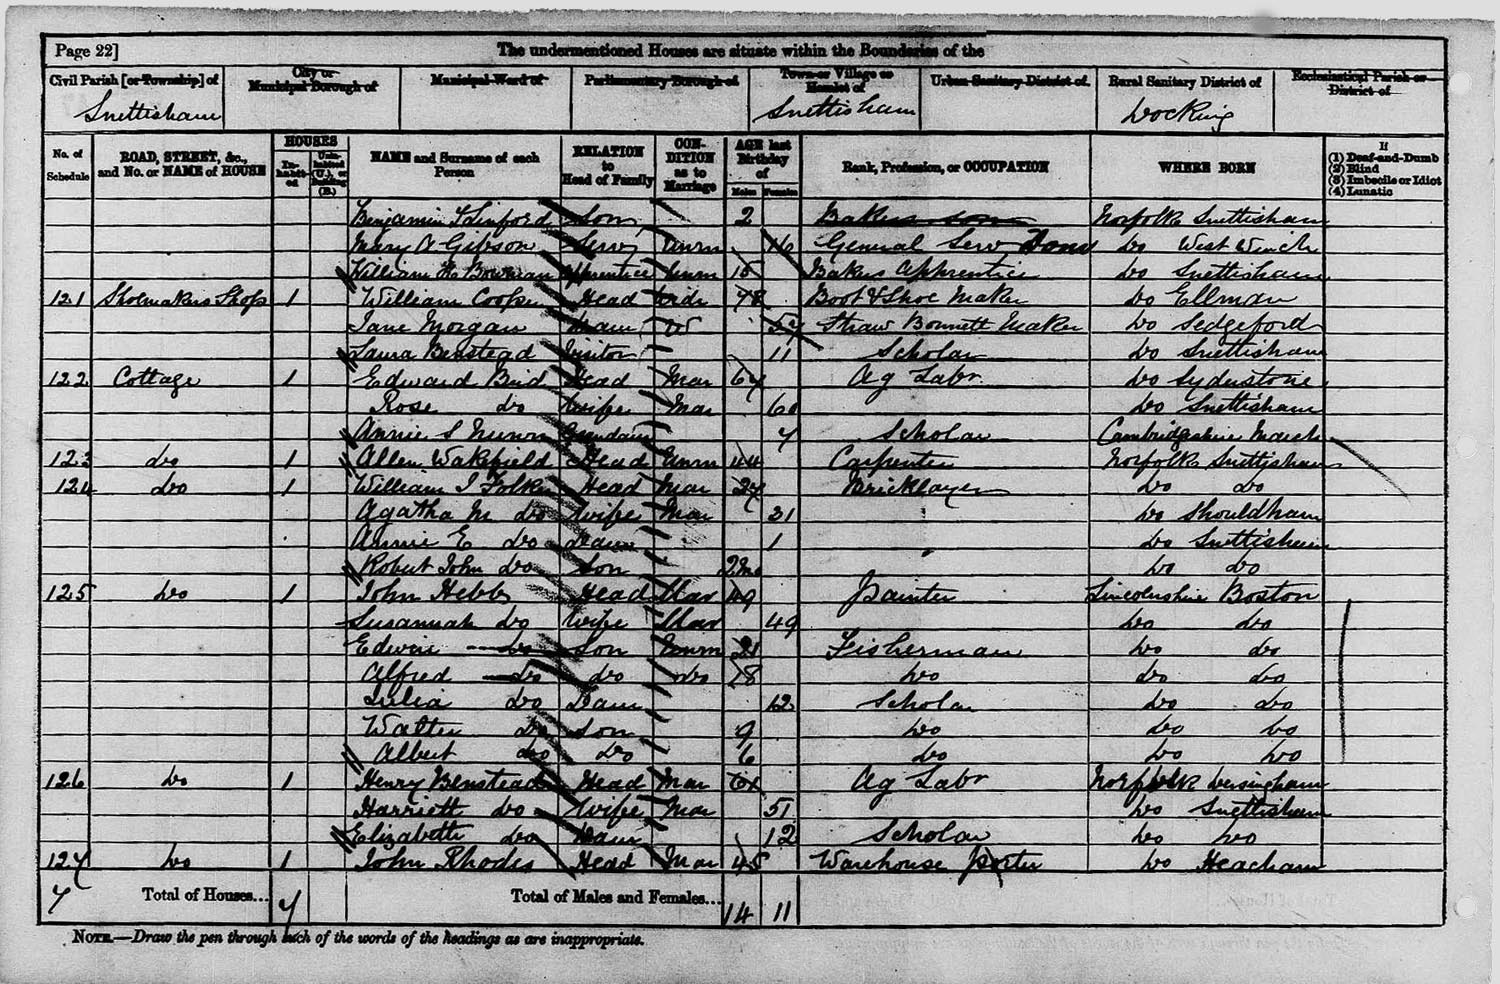 Page 22] The undermentioned Houses are situate within the Boundaries of the
Civil Parish [or Township] of City or Municipal Borough of Municipal Ward of Parliamentary Borough of Town or Village or Hamlet of Urban Sanitary District of Rural Sanitary District of Ecclesiastical Parish or District of
Snettisham Snettisham Docking
No. of Schedule ROAD, STREET, &c., and No. or NAME of HOUSE HOUSES In-habit-ed Unin-habited (U.), or Building (B.) NAME and Surname of each Person RELATION to Head of Family CON-DITION as to Marriage AGE last Birthday of Males Females Rank, Profession, or OCCUPATION WHERE BORN If (1) Deaf-and-Dumb (2) Blind (3) Imbecile or Idiot (4) Lunatic
Benjamin Son 2 Bakers son Norfolk Snettisham
Mary A Gibson Serv Unm 16 General Serv Dom Do West Winch
William H Bowman Apprentice Unm 15 Bakers Apprentice Do Snettisham
121 Shoemakers Shop 1 William Cooper Head Widr 78 Boot & Shoe Maker Do Ellman
Jane Morgan Daur W Straw Bonnett Maker Do Sedgeford
Laura Benstead Visitor 11 Scholar Do Snettisham
122 Cottage 1 Edward Bird Head Mar 64 Ag Labr Do Syderstone
Rose do Wife Mar 60 Do Snettisham
Annie S Nunn Grandaur 7 Scholar Cambridgeshire March
123 do 1 Allen Wakefield Head Unm 44 Carpenter Norfolk Snettisham
124 do 1 William J Folker Head Mar Bricklayer Do Do
Agatha M do Wife Mar 31 Do Shouldham
Annie E do Daur 1 Do Snettisham
Robert John do Son 2mo Do Do
125 Do 1 John Hebbs Head Mar 49 Painter Lincolnshire Boston
Susannah do Wife Mar 49 Do Do
Edwin do Son Unm 21 Fisherman Do Do
Alfred do do do 18 Do Do Do
Julia do Daur 12 Scholar Do Do
Walter do Son 9 Do Do Do
Albert do Do 6 Do Do Do
126 Do 1 Henry Benstead Head Mar 61 Ag Labr Norfolk Dersingham
Harriett do Wife Mar 51 Do Snettisham
Elizabeth do Daur 12 Scholar Do Do
127 Do 1 John Rhodes Head Mar 45 Warehouse Porter Do Heacham
7 Total of Houses... 7 Total of Males and Females... 14 11
NOTE.—Draw the pen through such of the words of the headings as are inappropriate.